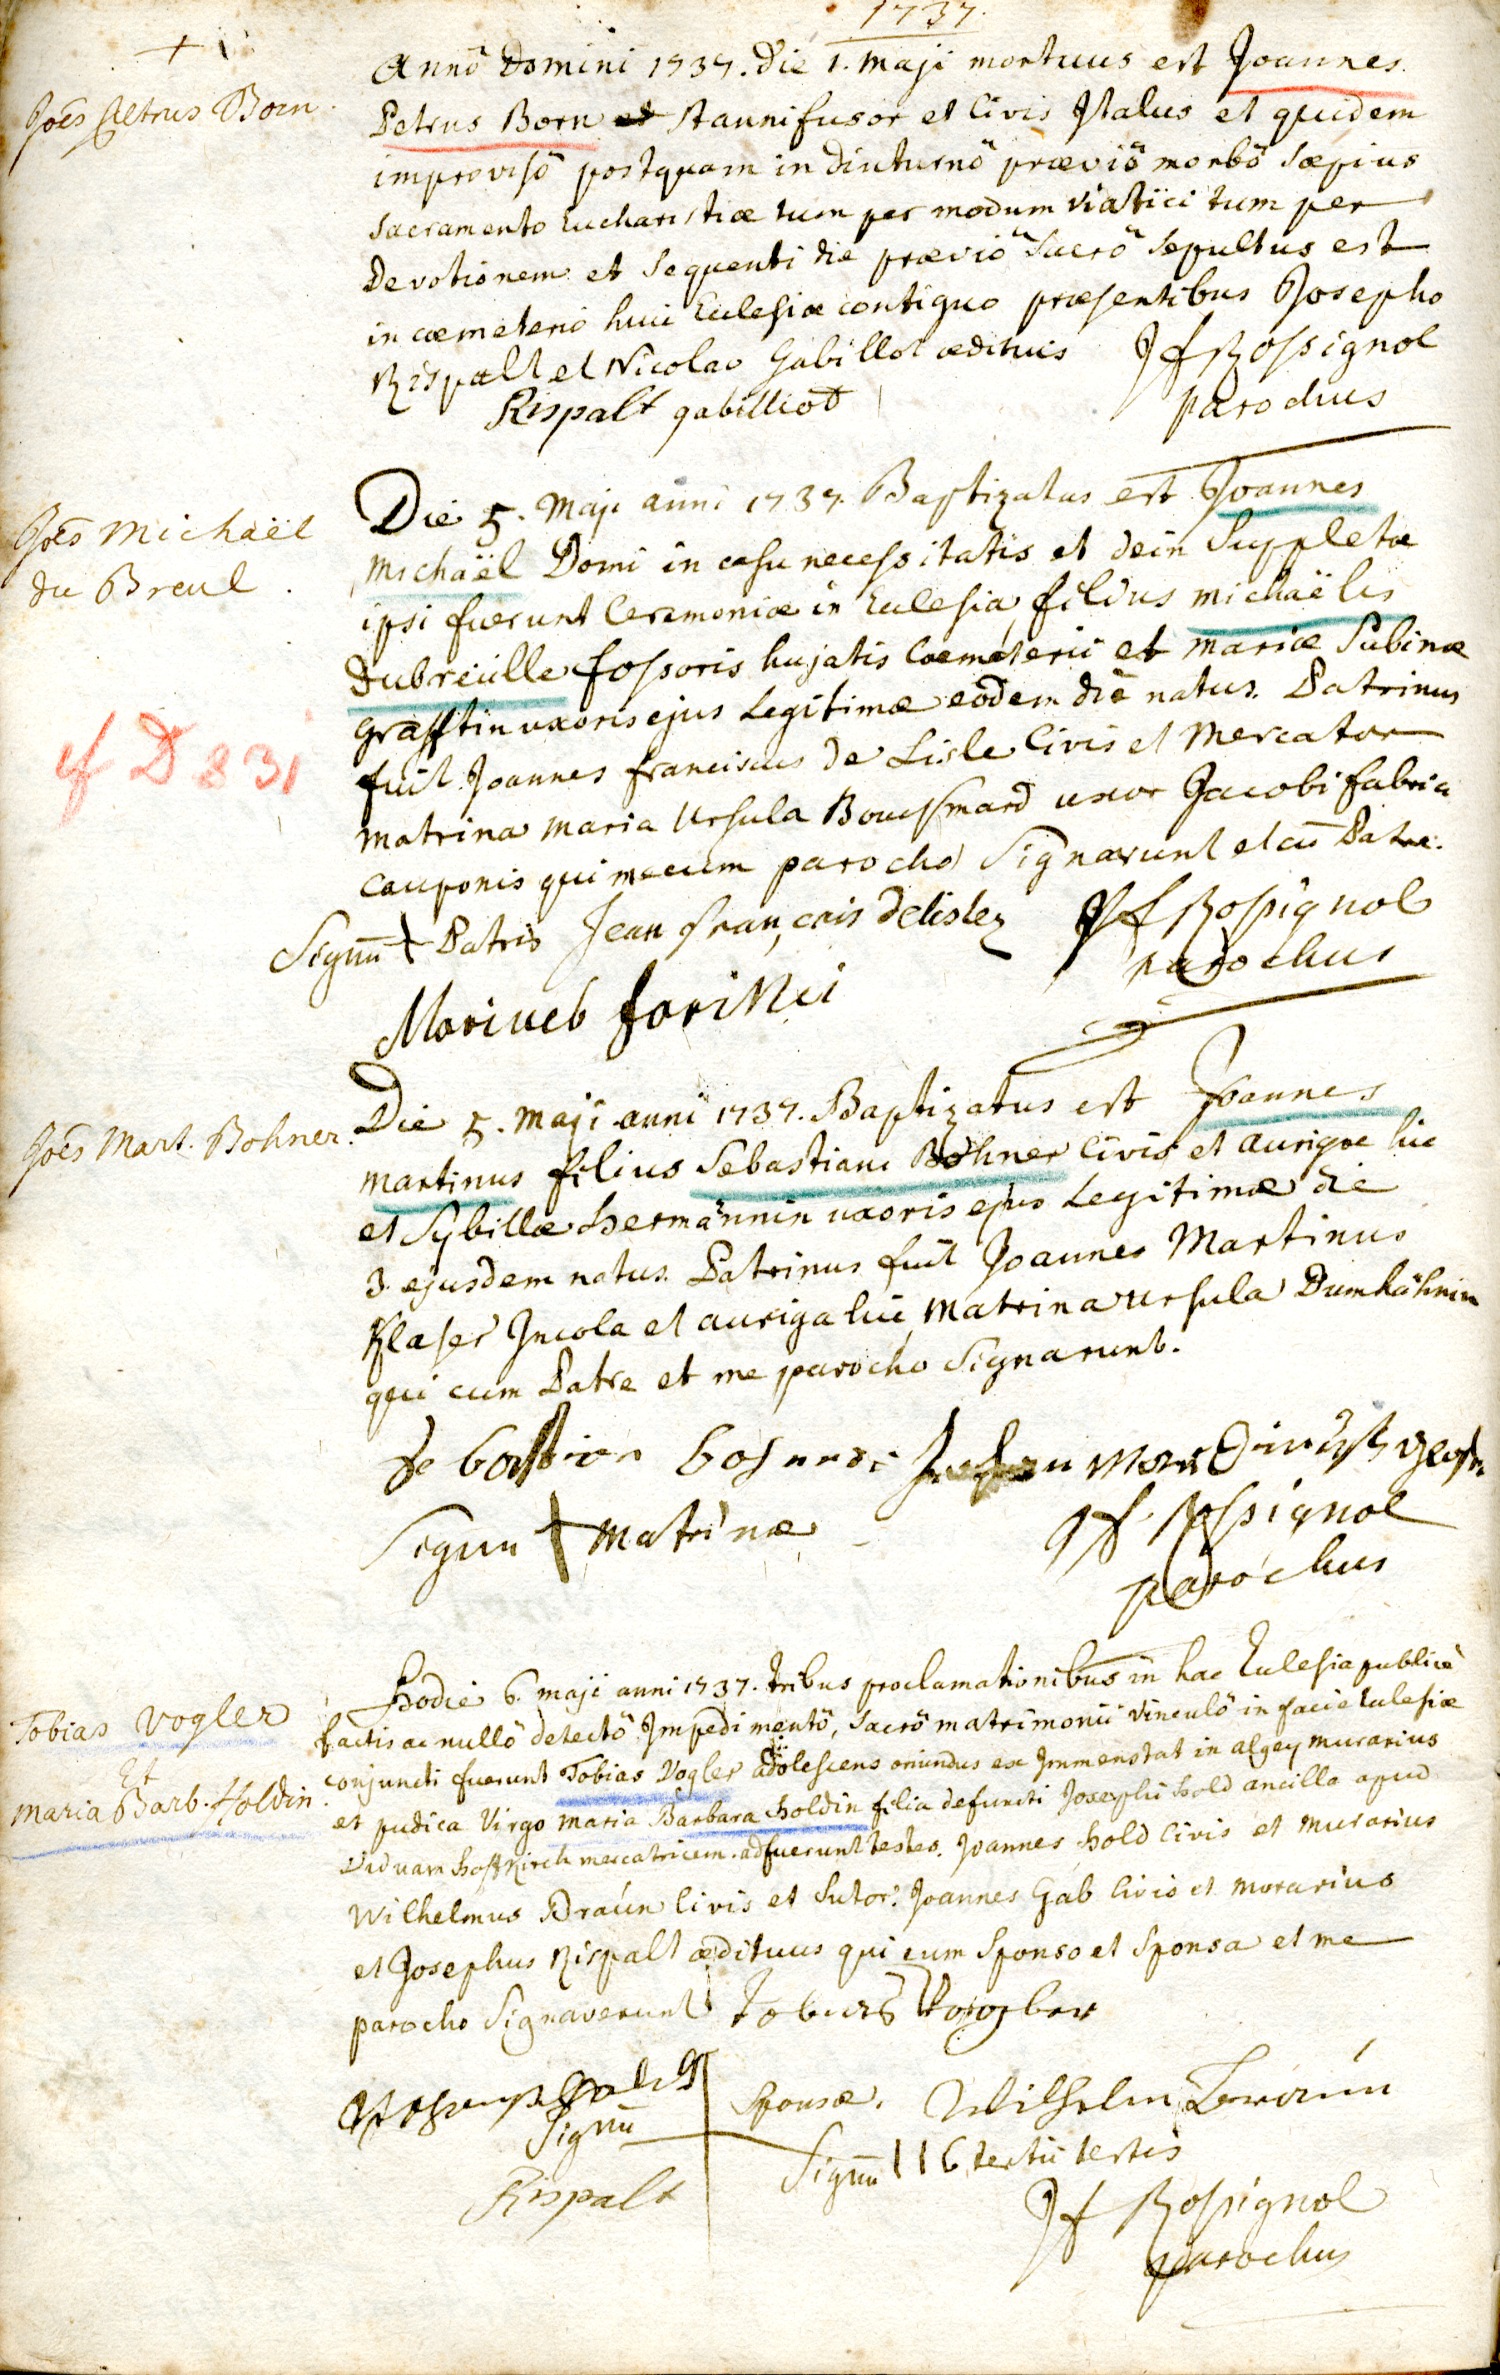 1737.
+
Annô Domini 1737. Die 1. Maji mortuus est Joannes
Joēs Petrus Born.
Petrus Born stannifusor et Civis Italus et quidem
improvisô postquam in diuturnô præviô morbô sæpius
sacramento Eucharistiæ tum per modum viatici tum per
Devotionem et sequenti die præviô sacrô sepultus est
in cæmeterio huic Ecclesiæ contiguo præsentibus Josepho
Rispalt et Nicolao Gabillot ædituis Jf Rossignol
Rispalt gabilliot parochus
Die 5. Maji anni 1737. Baptizatus est Joannes
Joēs Michaël
du Breul.
Michaël Domi in casu necessitatis et dein Suppletæ
ipsi fuerunt Ceremoniæ in Ecclesia, filius Michaëlis
Dubreuille fossoris hujatis Cœmeterii et Mariæ Sabinæ
Grafftin uxoris ejus Legitimæ eodem die natus. Patrinus
cf D 831
fuit Joannes franciscus De Lisle Civis et Mercator
Matrina Maria Ursula Boussmard uxor Jacobi fabria
Cauponis qui mecum parocho Signarunt et cū Patre.
Signū + Patris Jean françois delislez Jf Rossignol
parochus
Die 5. Maji anni 1737. Baptizatus est Joannes
Joēs Mart. Bohner.
Martinus filius Sebastiani Bohner Civis et aurigæ hic
et Sybillæ Hermännin uxoris ejus Legitimæ die
3. ejusdem natus. Patrinus fuit Joannes Martinus
Klaser Incola et auriga hic, Matrina Ursula Dumhähnin
qui cum Patre et me parocho Signarunt.
Signū + Matrinæ
Jf Rossignol
parochus
Hodie 6. maji anni 1737. tribus proclamationibus in hac Ecclesia publicè
Tobias Vogler
Et
Maria Barb. Holdin.
factis ac nullô detectô Impedimentô, sacrô matrimonii vinculô in facie Ecclesiæ
conjuncti fuerunt Tobias Vogler adolescens oriundus ex Immenstat in algey murarius
et pudica Virgo Maria Barbara Holdin filia defuncti Josephi Hold ancilla apud
viduam Hoffkirch mercatricem. adfuerunt testes. Joannes Hold Civis et murarius
Wilhelmus Braun Civis et Sutor. Joannes Gab Civis et murarius
et Josephus Rispalt ædituus qui cum Sponso et Sponsa et me
parocho Signaverunt Tobias Vogler
Signū + Sponsæ. Wilhelm Braun
Rispalt Signū 116 tertii testis
Jf Rossignol
parochus